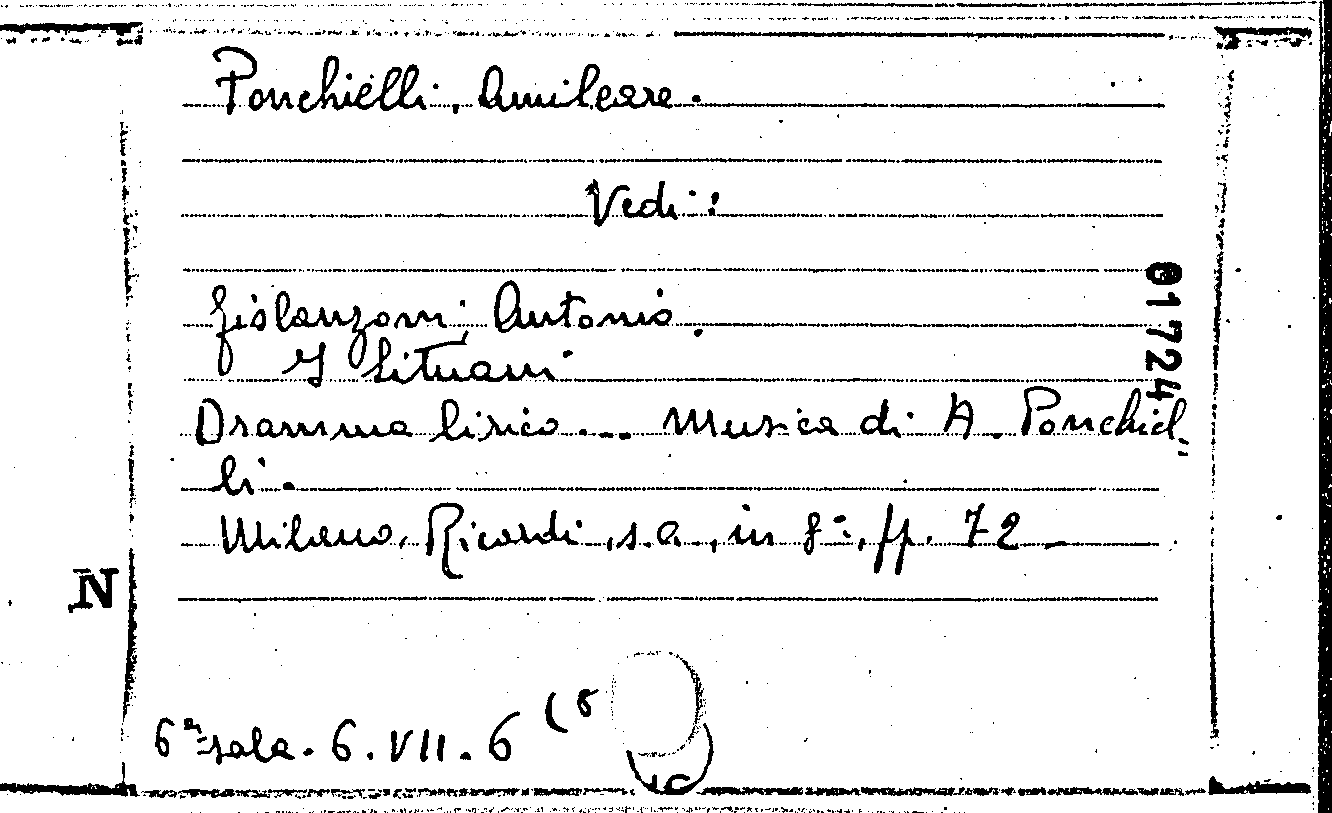 Ponchielli, Amilcare.
Vedi:
Gislanzoni, Antonio.
I Lituani
Dramma lirico... Musica di A. Ponchiel"
li.
Milano, Ricordi, s.a., in 8°, pp. 72
01724
N
6ª sala. 6. VII. 6 (8